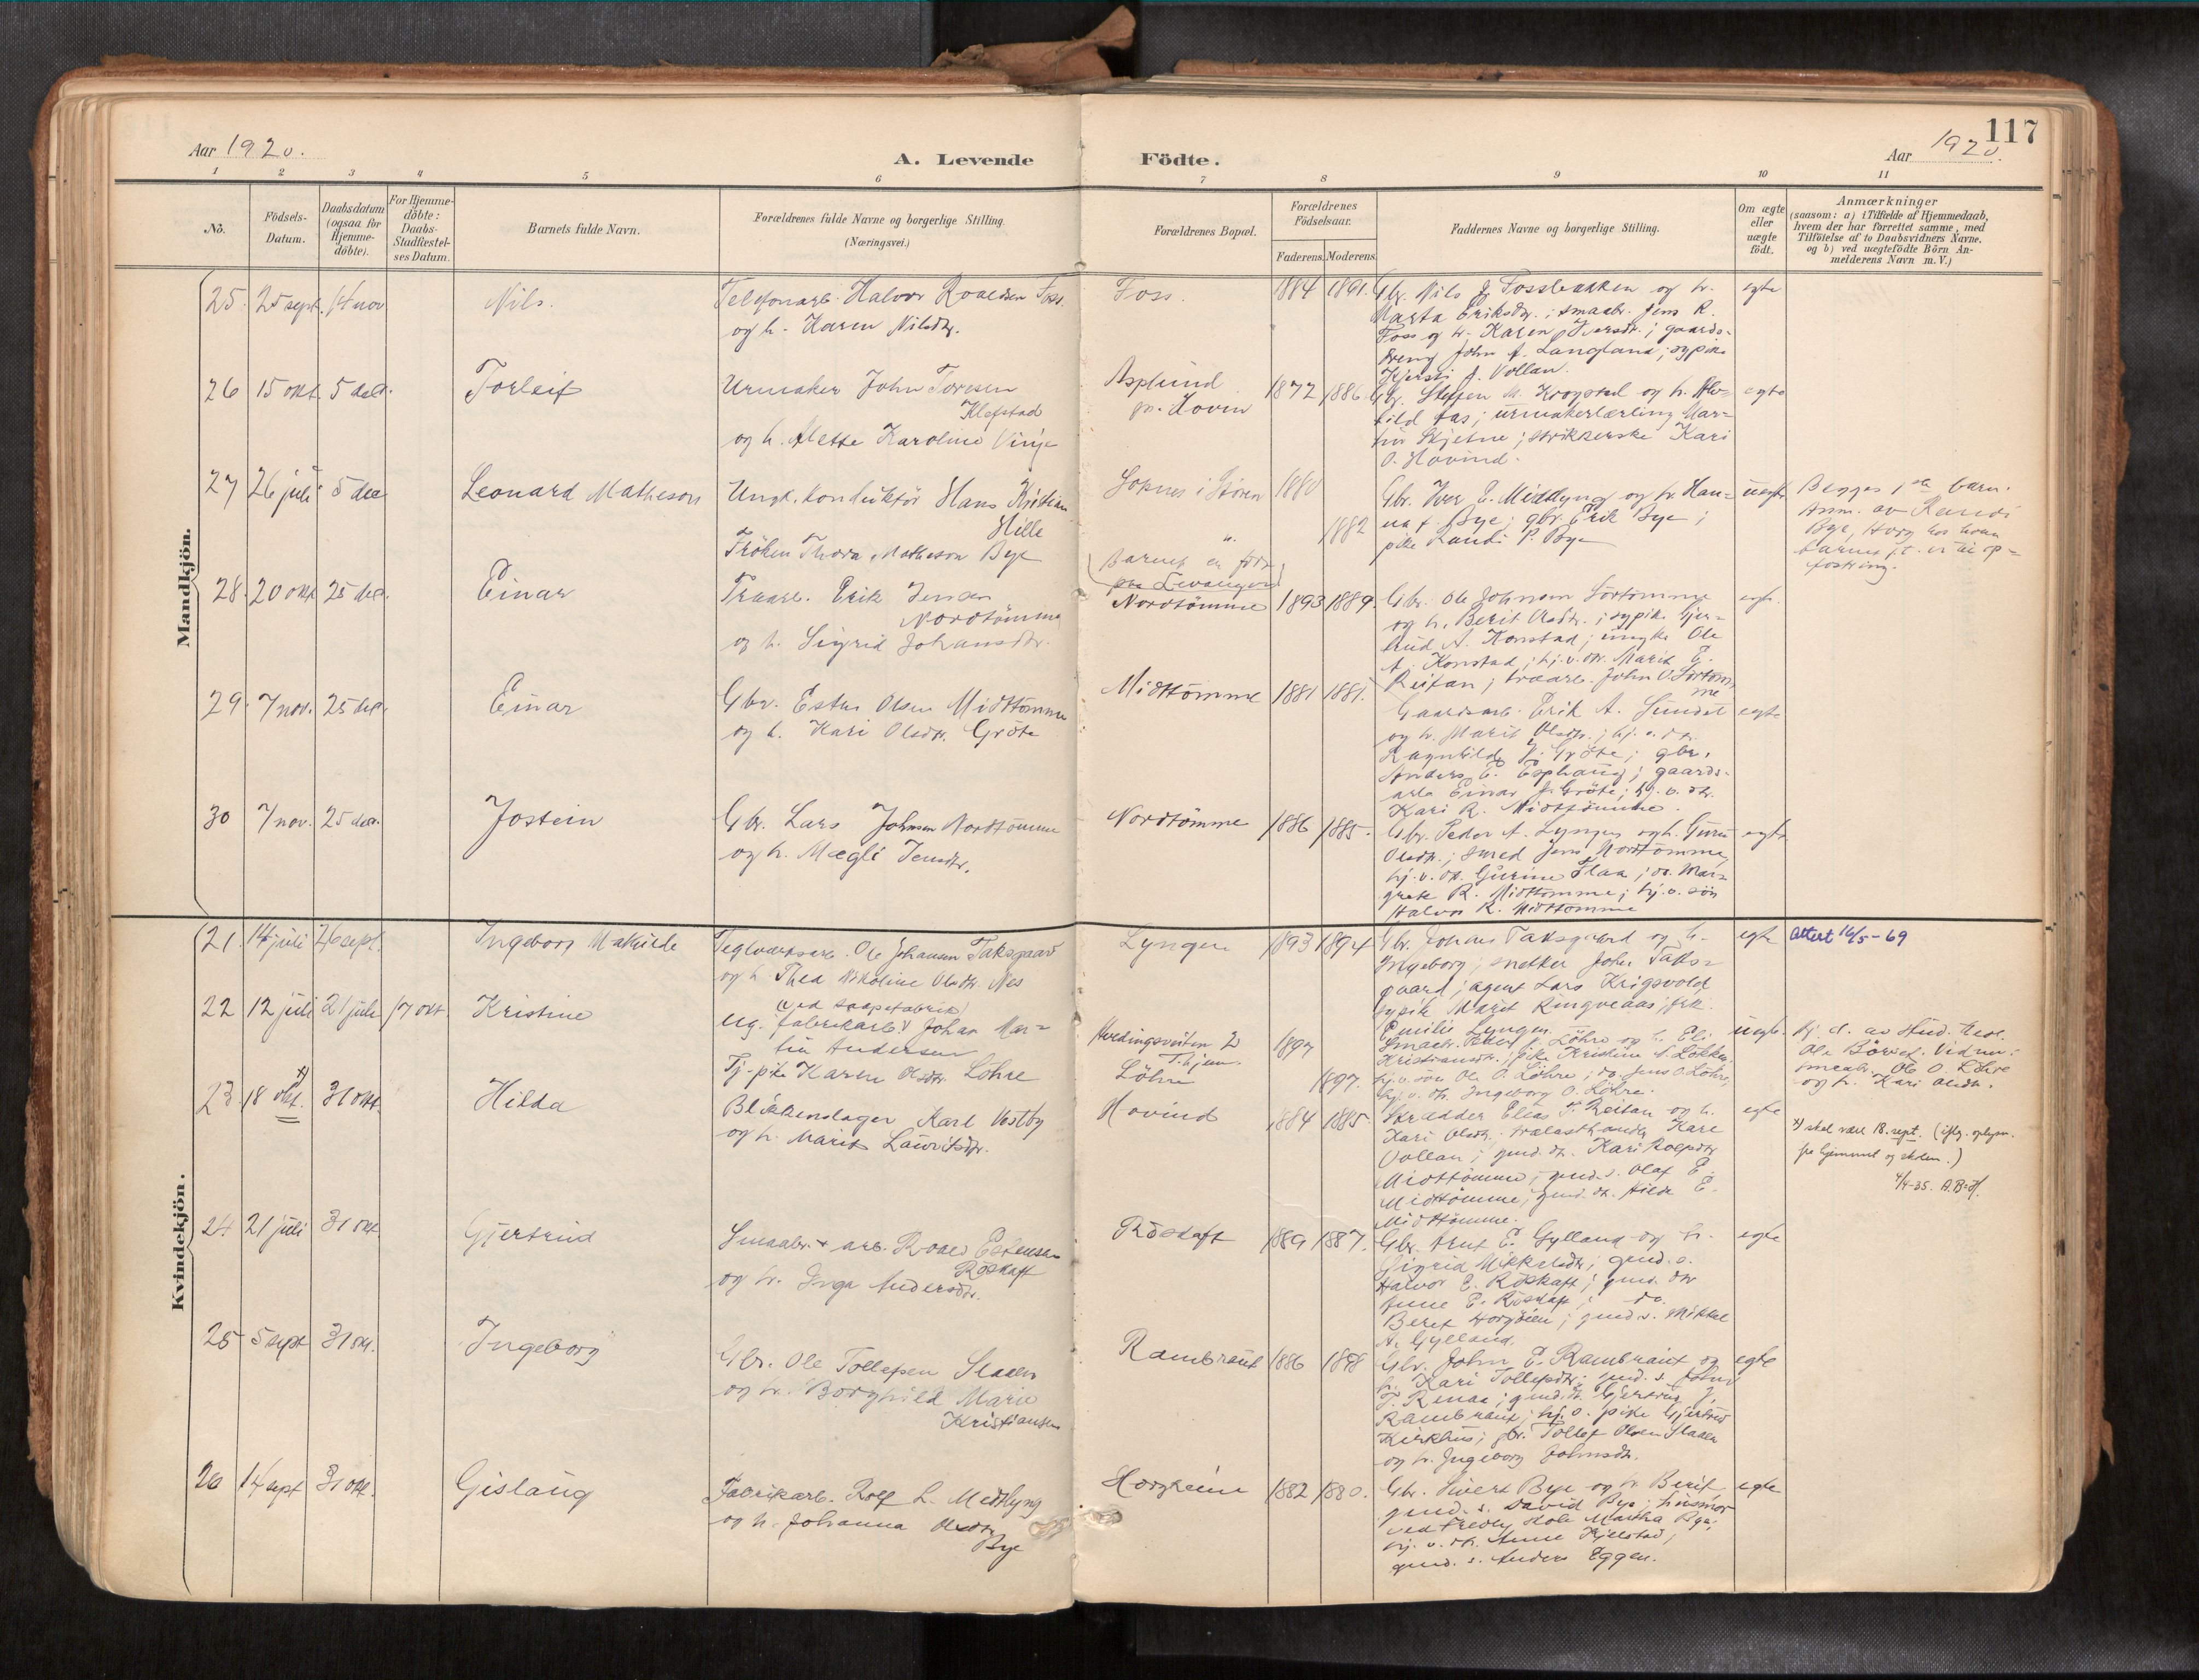 117
Aar 1920.
A. Levende Födte.
Aar 1920.
1 2 3 4 5 6 7 8 9 10 11
No.
Födsels-
Datum.
Daabsdatum
(ogsaa for
Hjemme-
döbte).
For Hjemme-
döbte:
Daabs-
Stadfæstel-
ses Datum.
Barnets fulde Navn.
Forældrenes fulde Navne og borgerlige Stilling.
(Næringsvei.)
Forældrenes Bopæl.
Forældrenes
Födselsaar.
Faderens. Moderens.
Faddernes Navne og borgerlige Stilling.
Om ægte
eller
uægte
födt.
Anmærkninger
(saasom: a) i Tilfælde af Hjemmedaab,
hvem der har forrettet samme, med
Tilföielse af to Daabsvidners Navne.
og b) ved uægtefödte Börn An-
melderens Navn m. V.)
Mandkjön.
25. 25 sept. 14 nov Nils.
Telefonarb. Halvor Roaldsen Foss.
og h. Karen Nilsdtr.
Foss. 1884 1891.
Gbr. Nils J. Fossbakken og h.
Marta Eriksdtr.; smaabr. Jens R.
Foss og h. Karen Iversdr.; gaards-
dreng John A. Langland; sypike
Kjersti J. Vollan.
egte
26 15 okt. 5 dec. Torleif
Urmaker John Toresen
Klefstad
og h. Alette Karoline Vinje
Asplund
pr. Hovin
1872 1886
Gbr. Steffen M. Krogstad og h. Alv-
hild Aas; urmakerlærling Mar-
tin Skjetne; strikkerske Kari
O. Hovind.
egte
27 26 juli 5 dec Leonard Matheson
Ungk. konduktör Hans Kristian
Hille
Fröken Thora Matheson Bye
Soknes i Stören 1880
1882
(Barnet er födt
paa Levanger)
Gbr. Iver E. Midtlyng og h. Han-
na f. Bye; gbr. Erik Bye;
pike Randi P. Bye
uegte
Begges 1ste barn.
Anm. av Randi
Bye, Horg hos hvem
barnet f.t. er til op-
fostring.
28. 20 okt 25 dec. Einar
Traarb. Erik Jensen
Nordtömme
og h. Sigrid Johansdtr.
Nordtömme 1893 1889.
Gbr. Ole Johnsen Sortömme
og h. Berit Olsdtr.; sypike Gjer-
trud A. Konstad; ungk. Ole
A. Konstad; hj.v. dtr. Marit E.
Reitan; traarb. John O. Sortöm-
me
egte.
29. 7 nov. 25 dec. Einar
Gbr. Esten Olsen Midttömme
og h. Kari Olsdtr. Gröte
Midttömme 1881 1881.
Gaardsarb. Erik A. Sundet
og h. Marit Olsdtr.; hj. v. dtr.
Ragnhild J. Gröte; gbr.
Anders E. Esphaug; gaards-
arb. Einar J. Gröte; hj. v. dtr.
Kari R. Midttömme.
egte
30 7 nov. 25 dec. Jostein
Gbr. Lars Johnsen Nordtömme
og h. Mægli Jensdtr.
Nordtömme 1886 1885.
Gbr. Peder A. Lyngen og h. Guru
Olsdtr.; smed Jens Nordtömme,
hj. v. dtr. Gurine Flaa; do. Mar-
grete R. Midttömme; hj. v. sön
Halvor R. Midttömme
egte
Kvindekjön.
21. 14 juli 26 sept. Ingeborg Mathilde
Teglverksarb. Ole Johansen Taksgaard
og h. Thea Nikoline Olsdtr. Nes
Lyngen 1893 1894.
Gbr. Johan Taksgaard og h.
Ingeborg; snekker John Taks-
gaard; agent Lars Krigsvold,
sypike Marit Ringveaas; frk.
Emilie Lyngen.
egte
Attest 16/5-69
22 12 juli 21 juli 17 okt. Kristine
(ved saapefabrik)
Ug. fabrikarb. Johan Mar-
tin Andersen
Tj. pike Karen Olsdtr. Löhre
Hvedingsveiten 2
T.hjem. 1897
Löhre 1897.
Smaabr. Peder J. Löhre og h. Eli
Kristiansdtr.; pike Kristine S. Lökken,
hj. v. sön Ole O. Löhre; do. Jens O. Löhre,
hj. v. dtr. Ingeborg O. Löhre.
uegte.
Hj. d. av stud. theol.
Ole Börset. Vidner:
smaabr. Ole O. Löhre
og h. Kari Olsdtr.
23 18 okt. x) 31 okt. Hilda
Blikkenslager Karl Vestby
og h. Marit Lauritsdtr.
Hovind 1884 1885.
Skrædder Elias T. Reitan og h.
Kari Olsdtr.; trælasthandler Kare
Vollan; gmd. dtr. Kari Roaldsdtr
Midttömme; gmd. s. Olaf E.
Midttömme; gmd. dtr. Hilda E.
Midttömme.
egte
x) skal være 18. sept. (iflg. oplysn.
fra hjemmet og skolen.)
4/4-35. A.B-H.
24 21 juli 31 okt. Gjertrud
Smaabr. + arb. Roald Estensen
Röskaft
og h. Inga Andersdtr.
Röskaft 1889 1887.
Gbr. Arnt E. Gylland og h.
Sigrid Mikkelsdtr; gmd. s.
Halvor E. Röskaft; gmd. dtr
Anne E. Röskaft; do.
Beret Horgöien; gmd. s. Mikkel
A. Gylland.
egte
25 5 sept 31 okt. Ingeborg
Gbr. Ole Tollefsen Staalen
og h. Borghild Marie
Kristiansen
Rambraut 1886 1898
Gbr. John E. Rambraut og
h. Kari Tollefsdtr; gmd. s. John
T. Renaa; gmd. dt. Gjertrud J.
Rambraut; hj. v. pike Gjertrud
Kirkhus; gbr. Tollef Olsen Staalen
og h. Ingeborg Johnsdtr.
egte
26 14 sept 31 okt. Gislaug
Fabrikarb. Rolf L. Midtlyng
og h. Johanna Olsdtr
Bye
Horgheim 1882 1880.
Gbr. Sivert Bye og h. Berit,
gmd. s. David Bye; husmor
ved Fredly skole Martha Bye;
hj. v. dtr. Anne Kjelstad;
gmd. s. Anders Eggen.
egte